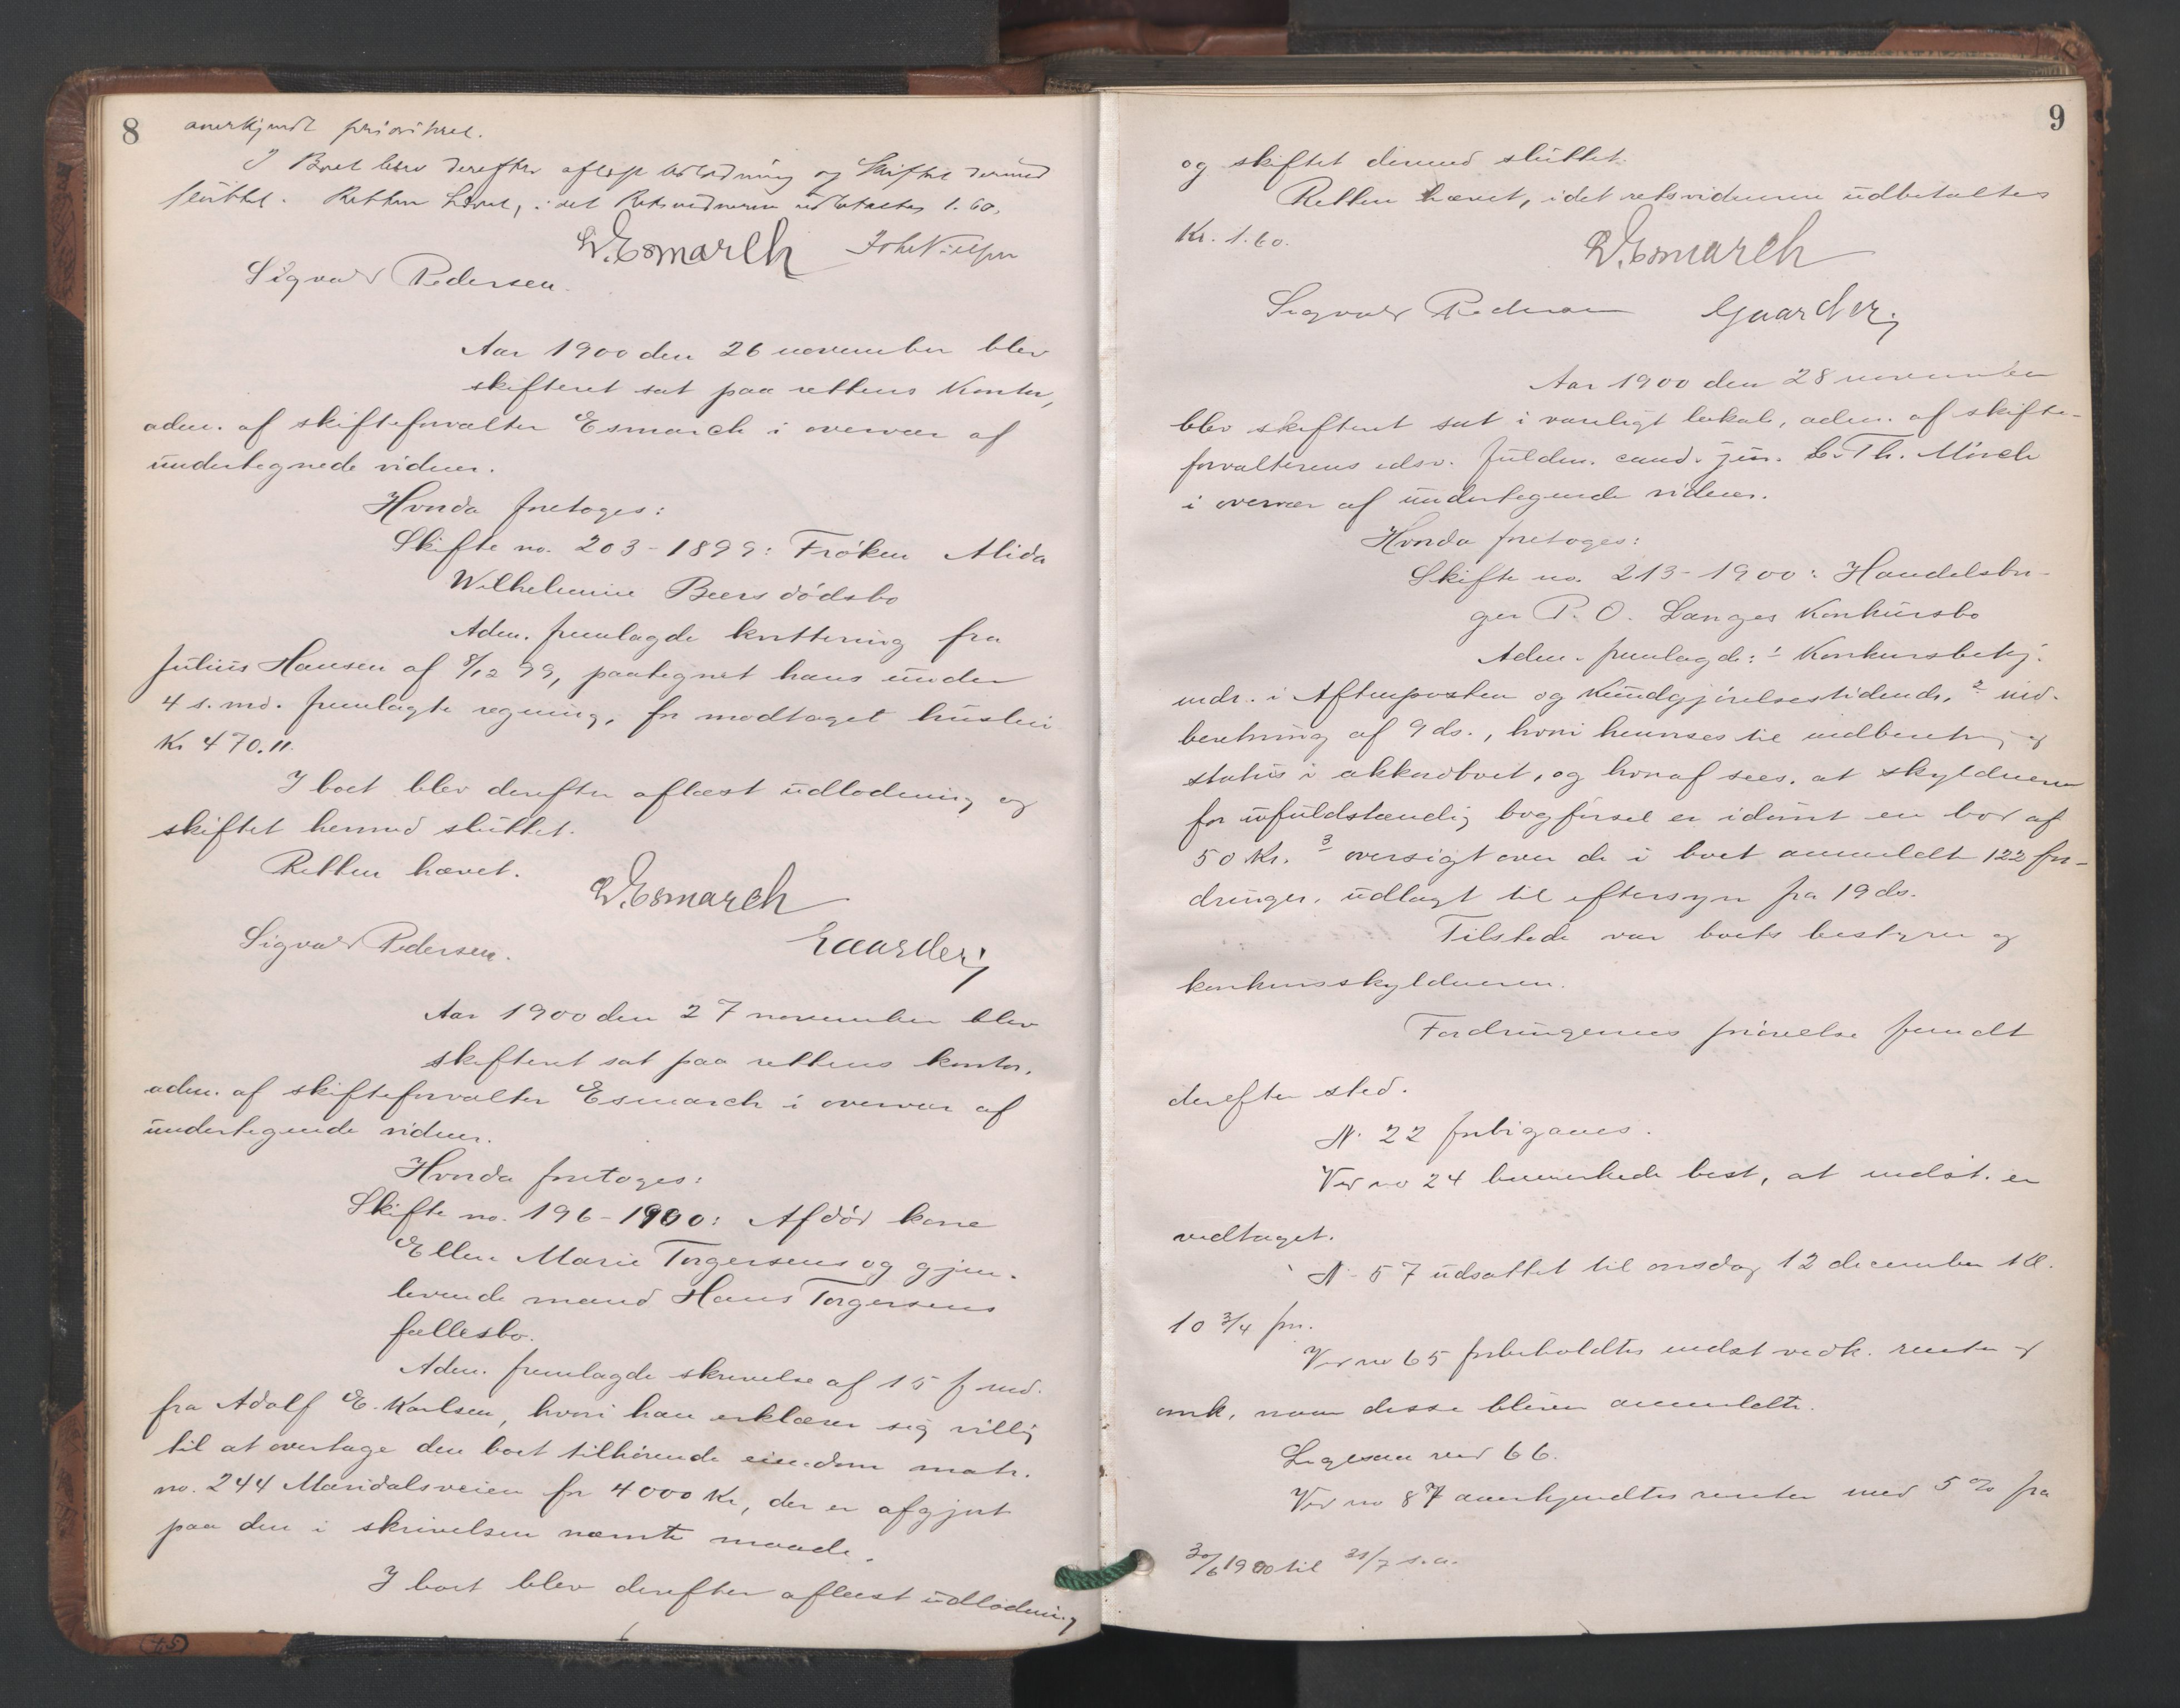 8
anerkjendt prioritet.
I Boet blev derefter aflæst Udlodning og Skiftet dermed
sluttet. Retten hævet, idet Retsvidnerne udbetaltes 1.60.
W. Esmarch Joh. Nielsen
Sigvald Pedersen.
Aar 1900 den 26 november blev
skifteret sat paa rettens Kontor,
adm. af skifteforvalter Esmarch i overvær af
undertegnede vidner.
Hvorda foretoges:
Skifte no. 203-1899: Frøken Alida
Wilhelmine Beers dødsbo
Adm. fremlagde kvittering fra
Julius Hansen af 8/12 99, paategnet hans under
4 s. md. fremlagte regning, for modtaget husleie
Kr 470.11.
I boet blev derefter aflæst udlodning og
skiftet hermed sluttet.
Retten hævet.
W. Esmarch
Sigvald Pedersen. Gaarder j
Aar 1900 den 27 november blev
skifteret sat paa rettens kontor,
adm. af skifteforvalter Esmarch i overvær af
undertegnede vidner.
Hvorda foretoges:
Skifte no. 196-1900: Afdød kone
Ellen Marie Torgersens og gjen-
levende mand Hans Torgersens
fællesbo.
Adm. fremlagde skrivelse af 15 f. md.
fra Adolf E. Karlsen, hvori han erklærer sig villig
til at overtage den boet tilhørende eiendom matr.
no. 244 Maridalsveien for 4000 Kr, der er afgjort
paa den i skrivelsen nævnte maade.
I boet blev derefter aflæst udlodning
9
og skiftet dermed sluttet.
Retten hævet, idet retsvidnerne udbetaltes
Kr. 1.60.
W. Esmarch
Sigvald Pedersen Gaarder j
Aar 1900 den 28 november
blev skifteret sat i vanligt lokale, adm. af skifte-
forvalterens edsv. fuldm. cand. jur. C. Th. Mörch
i overvær af undertegnede vidner.
Hvorda foretoges:
Skifte no. 213-1900: Handelsbor-
ger P. O. Langes Konkursbo
Adm. fremlagde: 1 Konkursbekj.
indr. i Aftenposten og Kundgjørelsestidende, 2 ind-
beretning af 9 ds., hvori henvises til indberetning og
status i akkordboet, og hvoraf sees, at skyldneren
for ufuldstændig bogførsel er idømt en bod af
50 Kr. 3 oversigt over de i boet anmeldte 122 for-
dringer, udlagt til eftersyn fra 19 ds.
Tilstede var boets bestyrer og
konkursskyldneren.
Fordringernes prøvelse fandt
derefter sted.
N. 22 forbigaaes.
Ved no 24 bemerkede best., at indst. er
vedtaget.
N. 57 udsattes til onsdag 12 december kl.
10 3/4 fm.
Ved no 65 forbeholdtes indst vedk. renter og
omk, naar disse bliver anmeldte.
Ligesaa ved 66.
Ved no 87 anerkjendtes renter med 5 % fra
30/6 1900 til 31/7 s. a.
(45)